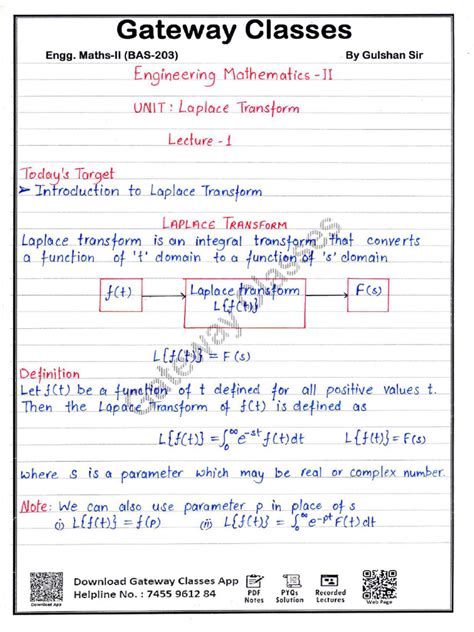 Gateway Classes
Engg. Maths-II (BAS-203) By Gulshan Sir
Engineering Mathematics-II
UNIT: Laplace Transform
Lecture-1
Today's Target
➢ Introduction to Laplace Transform
LAPLACE TRANSFORM
Laplace transform is an integral transform that converts
a function of 't' domain to a function of 's' domain
f(t) Laplace transform F(s)
L{f(t)}
L{f(t)} = F(s)
Definition
Let f(t) be a function of t defined for all positive values t.
Then the Lapace Transform of f(t) is defined as
L{f(t)} = ∫₀^∞ e^-st f(t)dt L{f(t)} = F(s)
where S is a parameter which may be real or complex number.
Note: We can also use parameter p in place of s
(i) L{f(t)} = f(p) (ii) L{f(t)} = ∫₀^∞ e^-pt F(t)dt
Gateway Classes
Download Gateway Classes App
Helpline No. : 7455 9612 84
Download App
PDF Notes
PYQs Solution
Recorded Lectures
Web Page